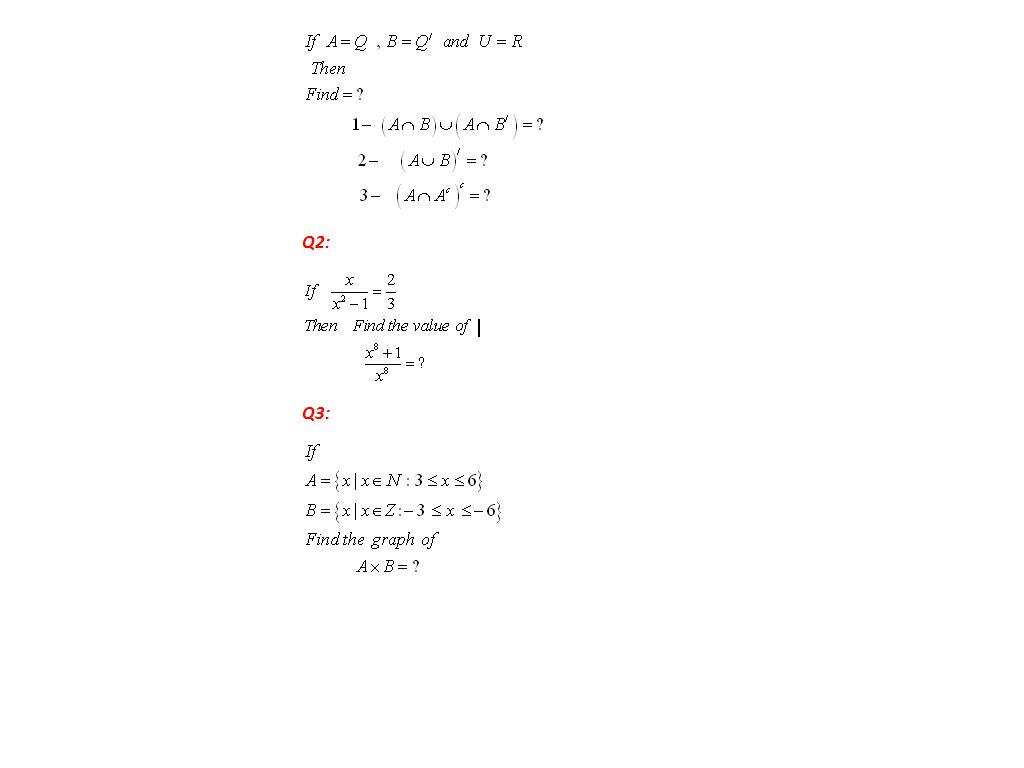 If A = Q , B = Q′ and U = R
Then
Find = ?
1− (A∩ B)∪(A∩ B′) = ?
2− (A∪ B)′ = ?
3− (A∩ Aᶜ)ᶜ = ?
Q2:
If x/(x² − 1) = 2/3
Then Find the value of |
(x⁸ + 1)/x⁸ = ?
Q3:
If
A = {x | x ∈ N : 3 ≤ x ≤ 6}
B = {x | x ∈ Z :− 3 ≤ x ≤ − 6}
Find the graph of
A × B = ?